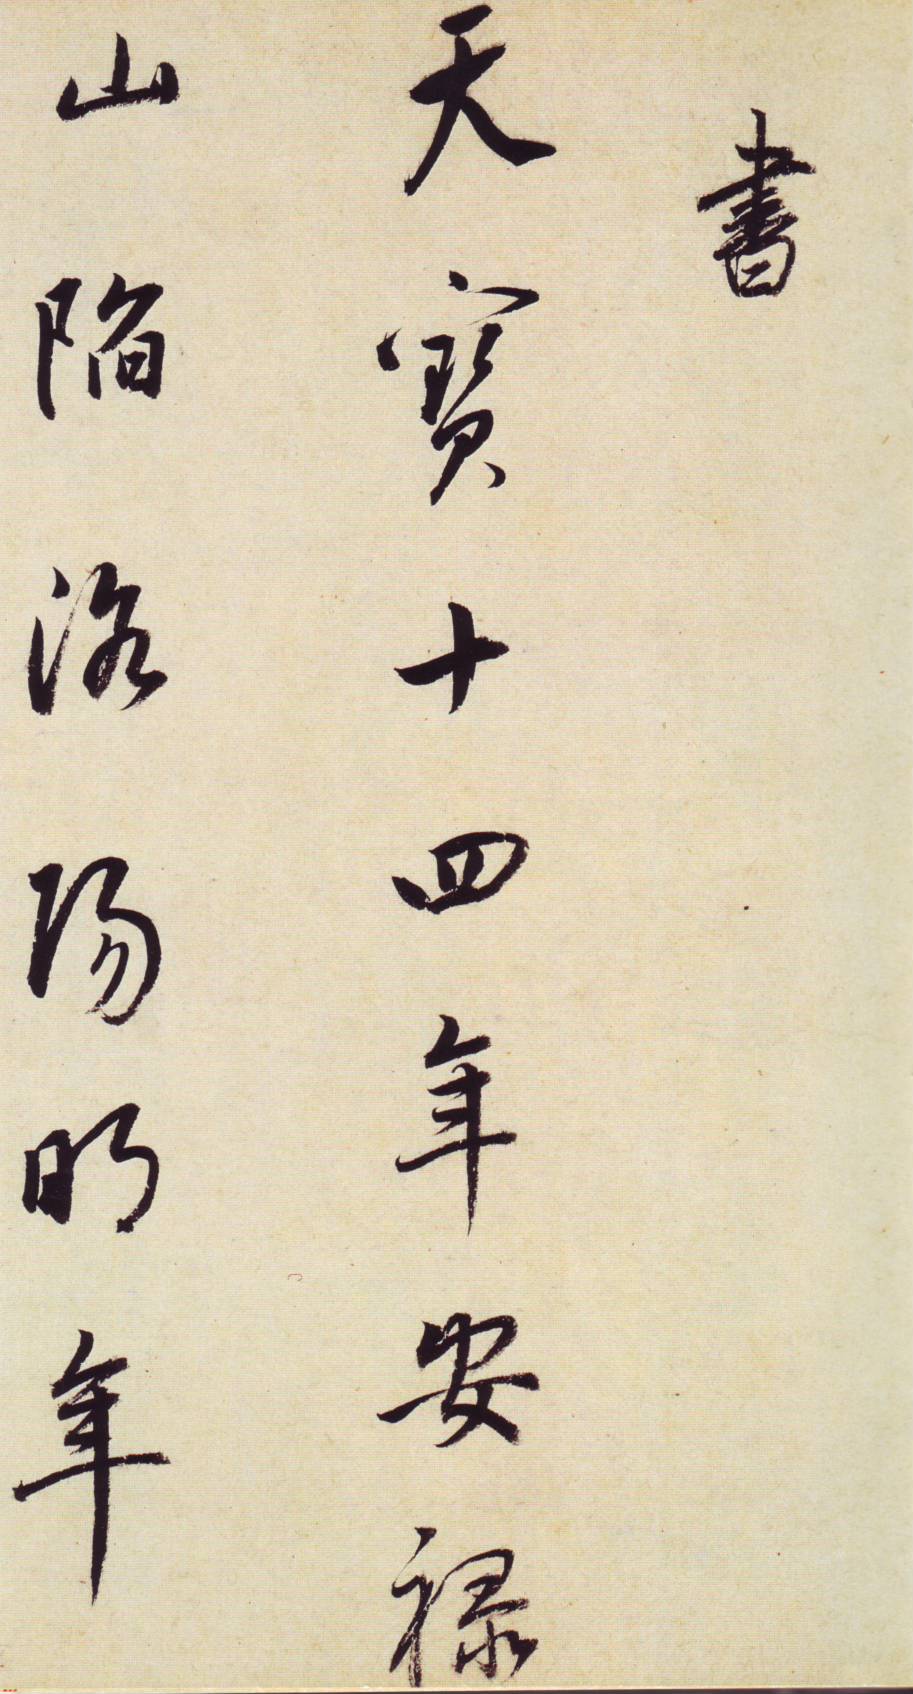 書
天寶十四年安禄
山陷洛陽明年